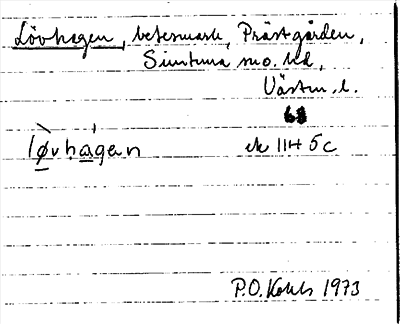 Lövhagen, betesmark, Prästgården,
Simtuna sn o. hd,
Västm. l.
lø̀vhágen ek 11H 5c
P.O. 1973